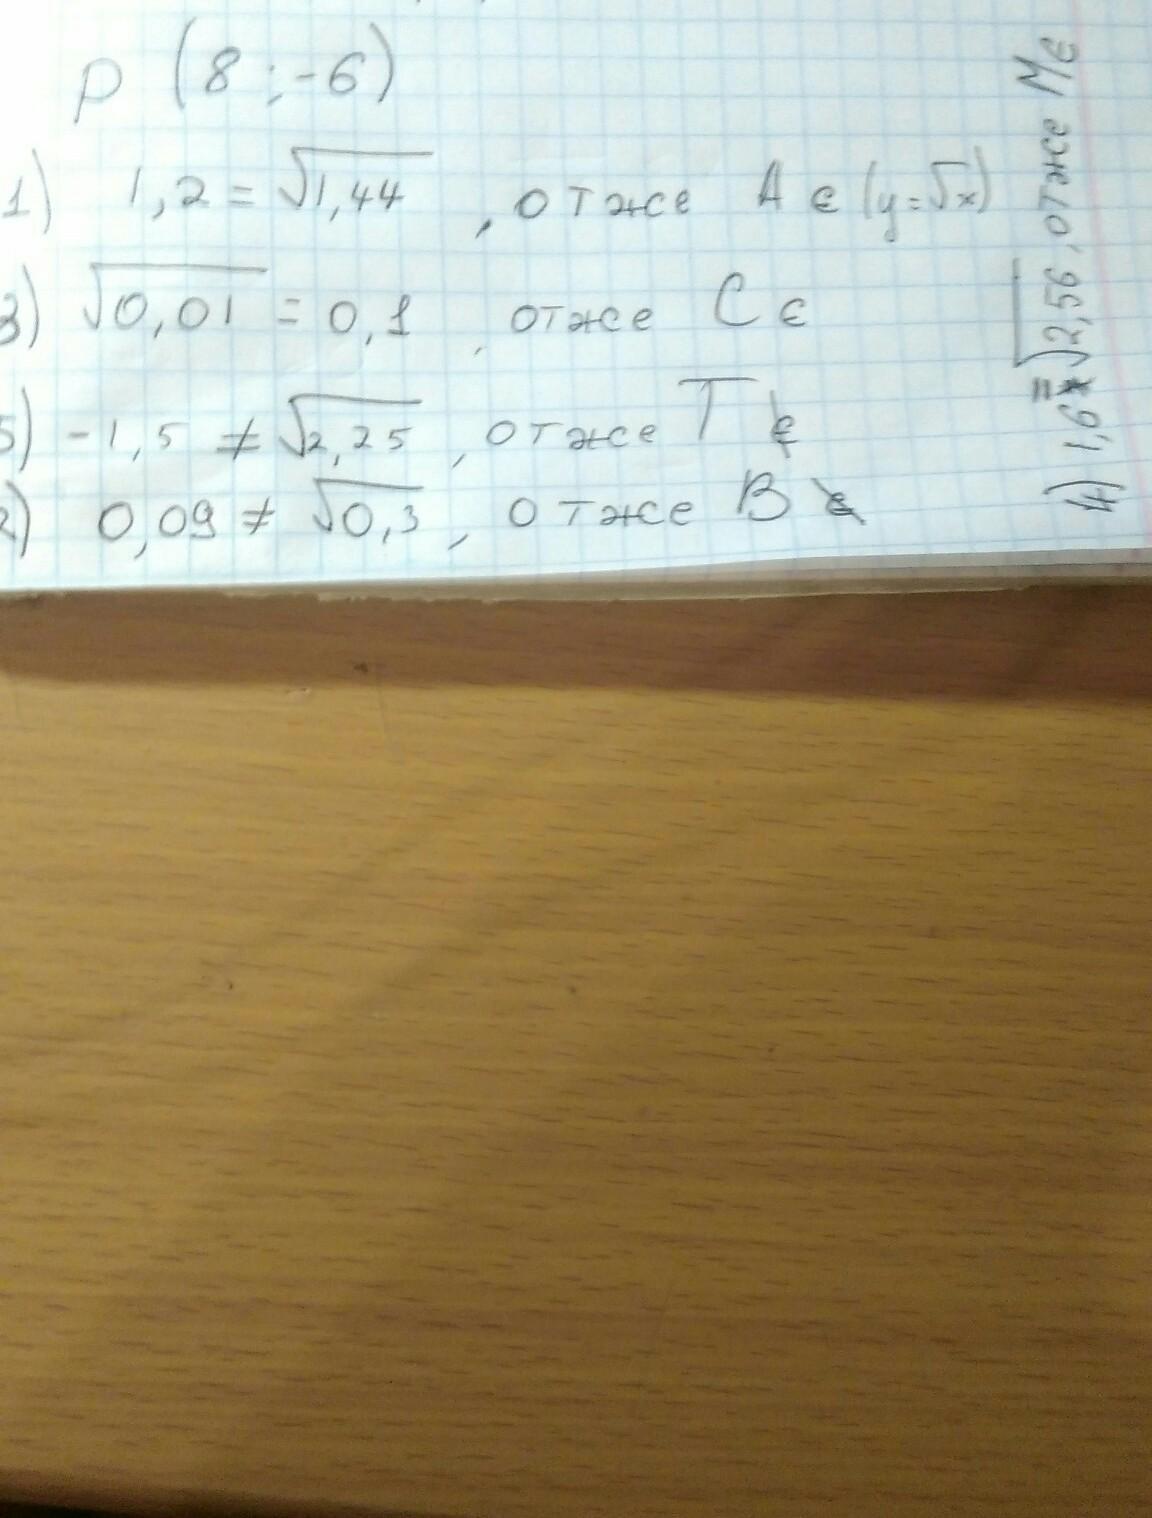 р (8 ; -6)
1) 1,2 = √1,44 , отже A ∈ (y=√x)
3) √0,01 = 0,1 , отже C ∈
5) -1,5 ≠ √2,25 , отже T ∉
2) 0,09 ≠ √0,3 , отже B ∉
4) 1,6 = √2,56 , отже M ∈